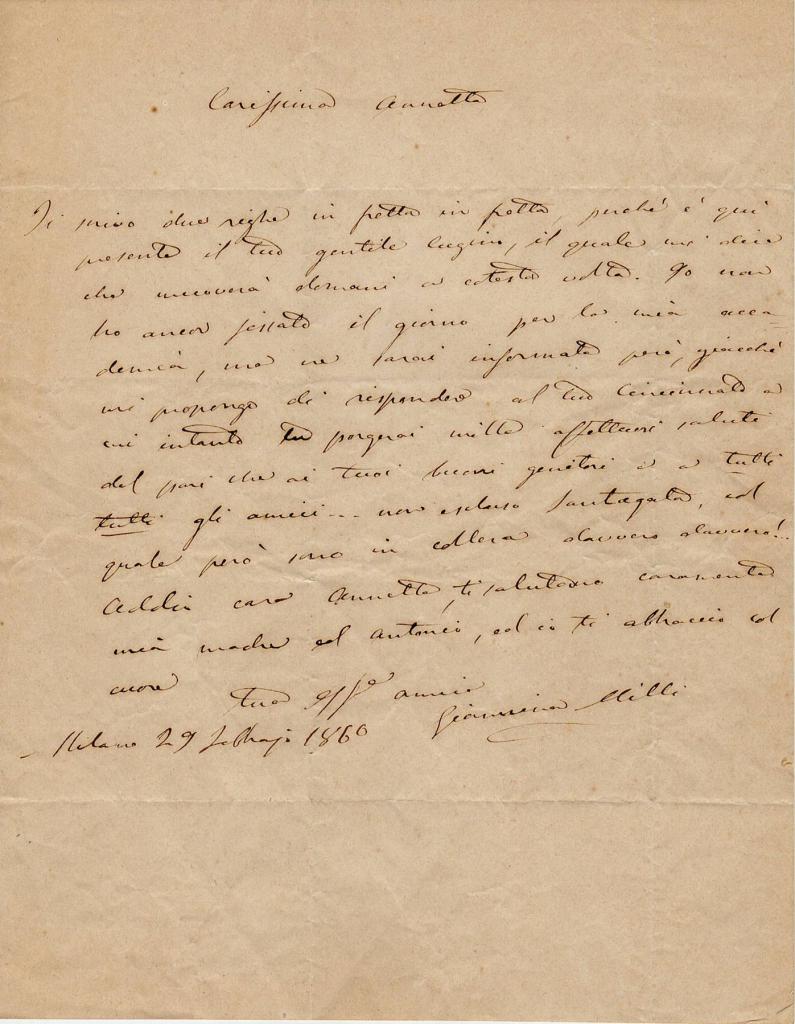 Carissima Annetta
Ti scrivo due righe in fretta in fretta, perché è qui
presente il tuo gentile cugino, il quale mi dice
che muoverà domani a cotesta volta. Io non
ho ancor fissato il giorno per la mia acca-
demia, ma ne sarai informata però, giacché
mi propongo di rispondere al tuo Cincinnato a
cui intanto tu porgerai mille affettuosi saluti
del pari che ai tuoi buoni genitori e a tutti
tutti gli amici... non escluso Santagata, col
quale però sono in collera davvero davvero!..
Addio cara Annetta, ti salutano caramente
mia madre ed Antonio, ed io ti abbraccio col
cuore
tua aff.e amica
Giannina Milli
Milano 29 febbrajo 1860